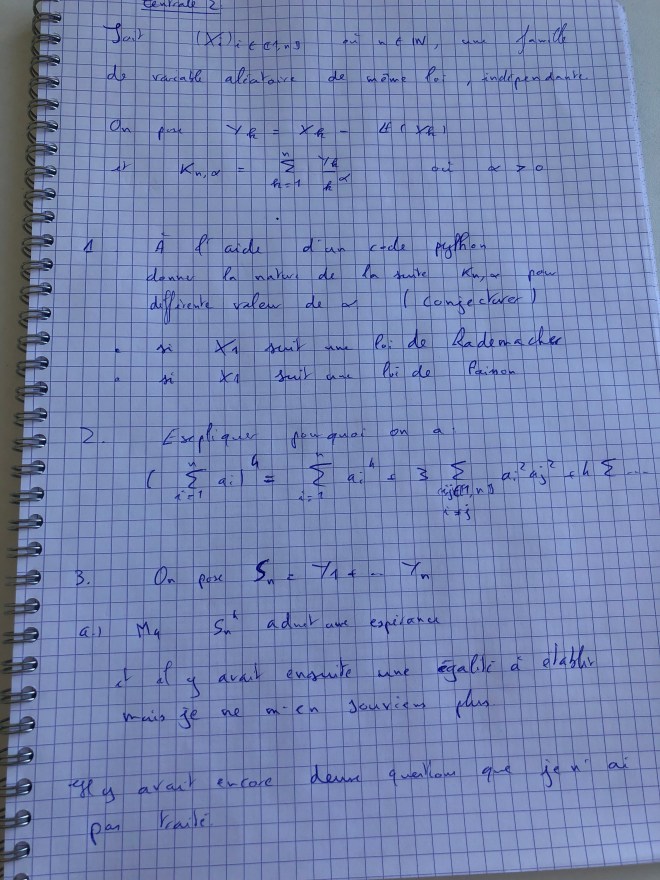 Centrale 2
Soit (Xi) i∈⟦1,n⟧ où n ∈ ℕ, une famille
de variable aléatoire de même loi, indépendante.
On pose Yk = Xk - E(Xk)
et Kn,α = ∑_{k=1}^{n} Yk/k^α où α > 0
1 À l'aide d'un code python
donner la nature de la suite Kn,α pour
différente valeur de α (conjecturer)
• si X1 suit une loi de Rademacher
• si X1 suit une loi de Poisson
2. Expliquer pourquoi on a :
(∑_{i=1}^{n} ai)^4 = ∑_{i=1}^{n} ai^4 + 3 ∑_{i,j∈⟦1,n⟧ i≠j} ai² aj² + 4 ∑ ...
3. On pose Sn = Y1 + ... Yn
a.) Mq Sn^4 admet une espérance
et il y avait ensuite une égalité à établir
mais je ne m'en souviens plus
Il y avait encore deux questions que je n'ai
pas traité.